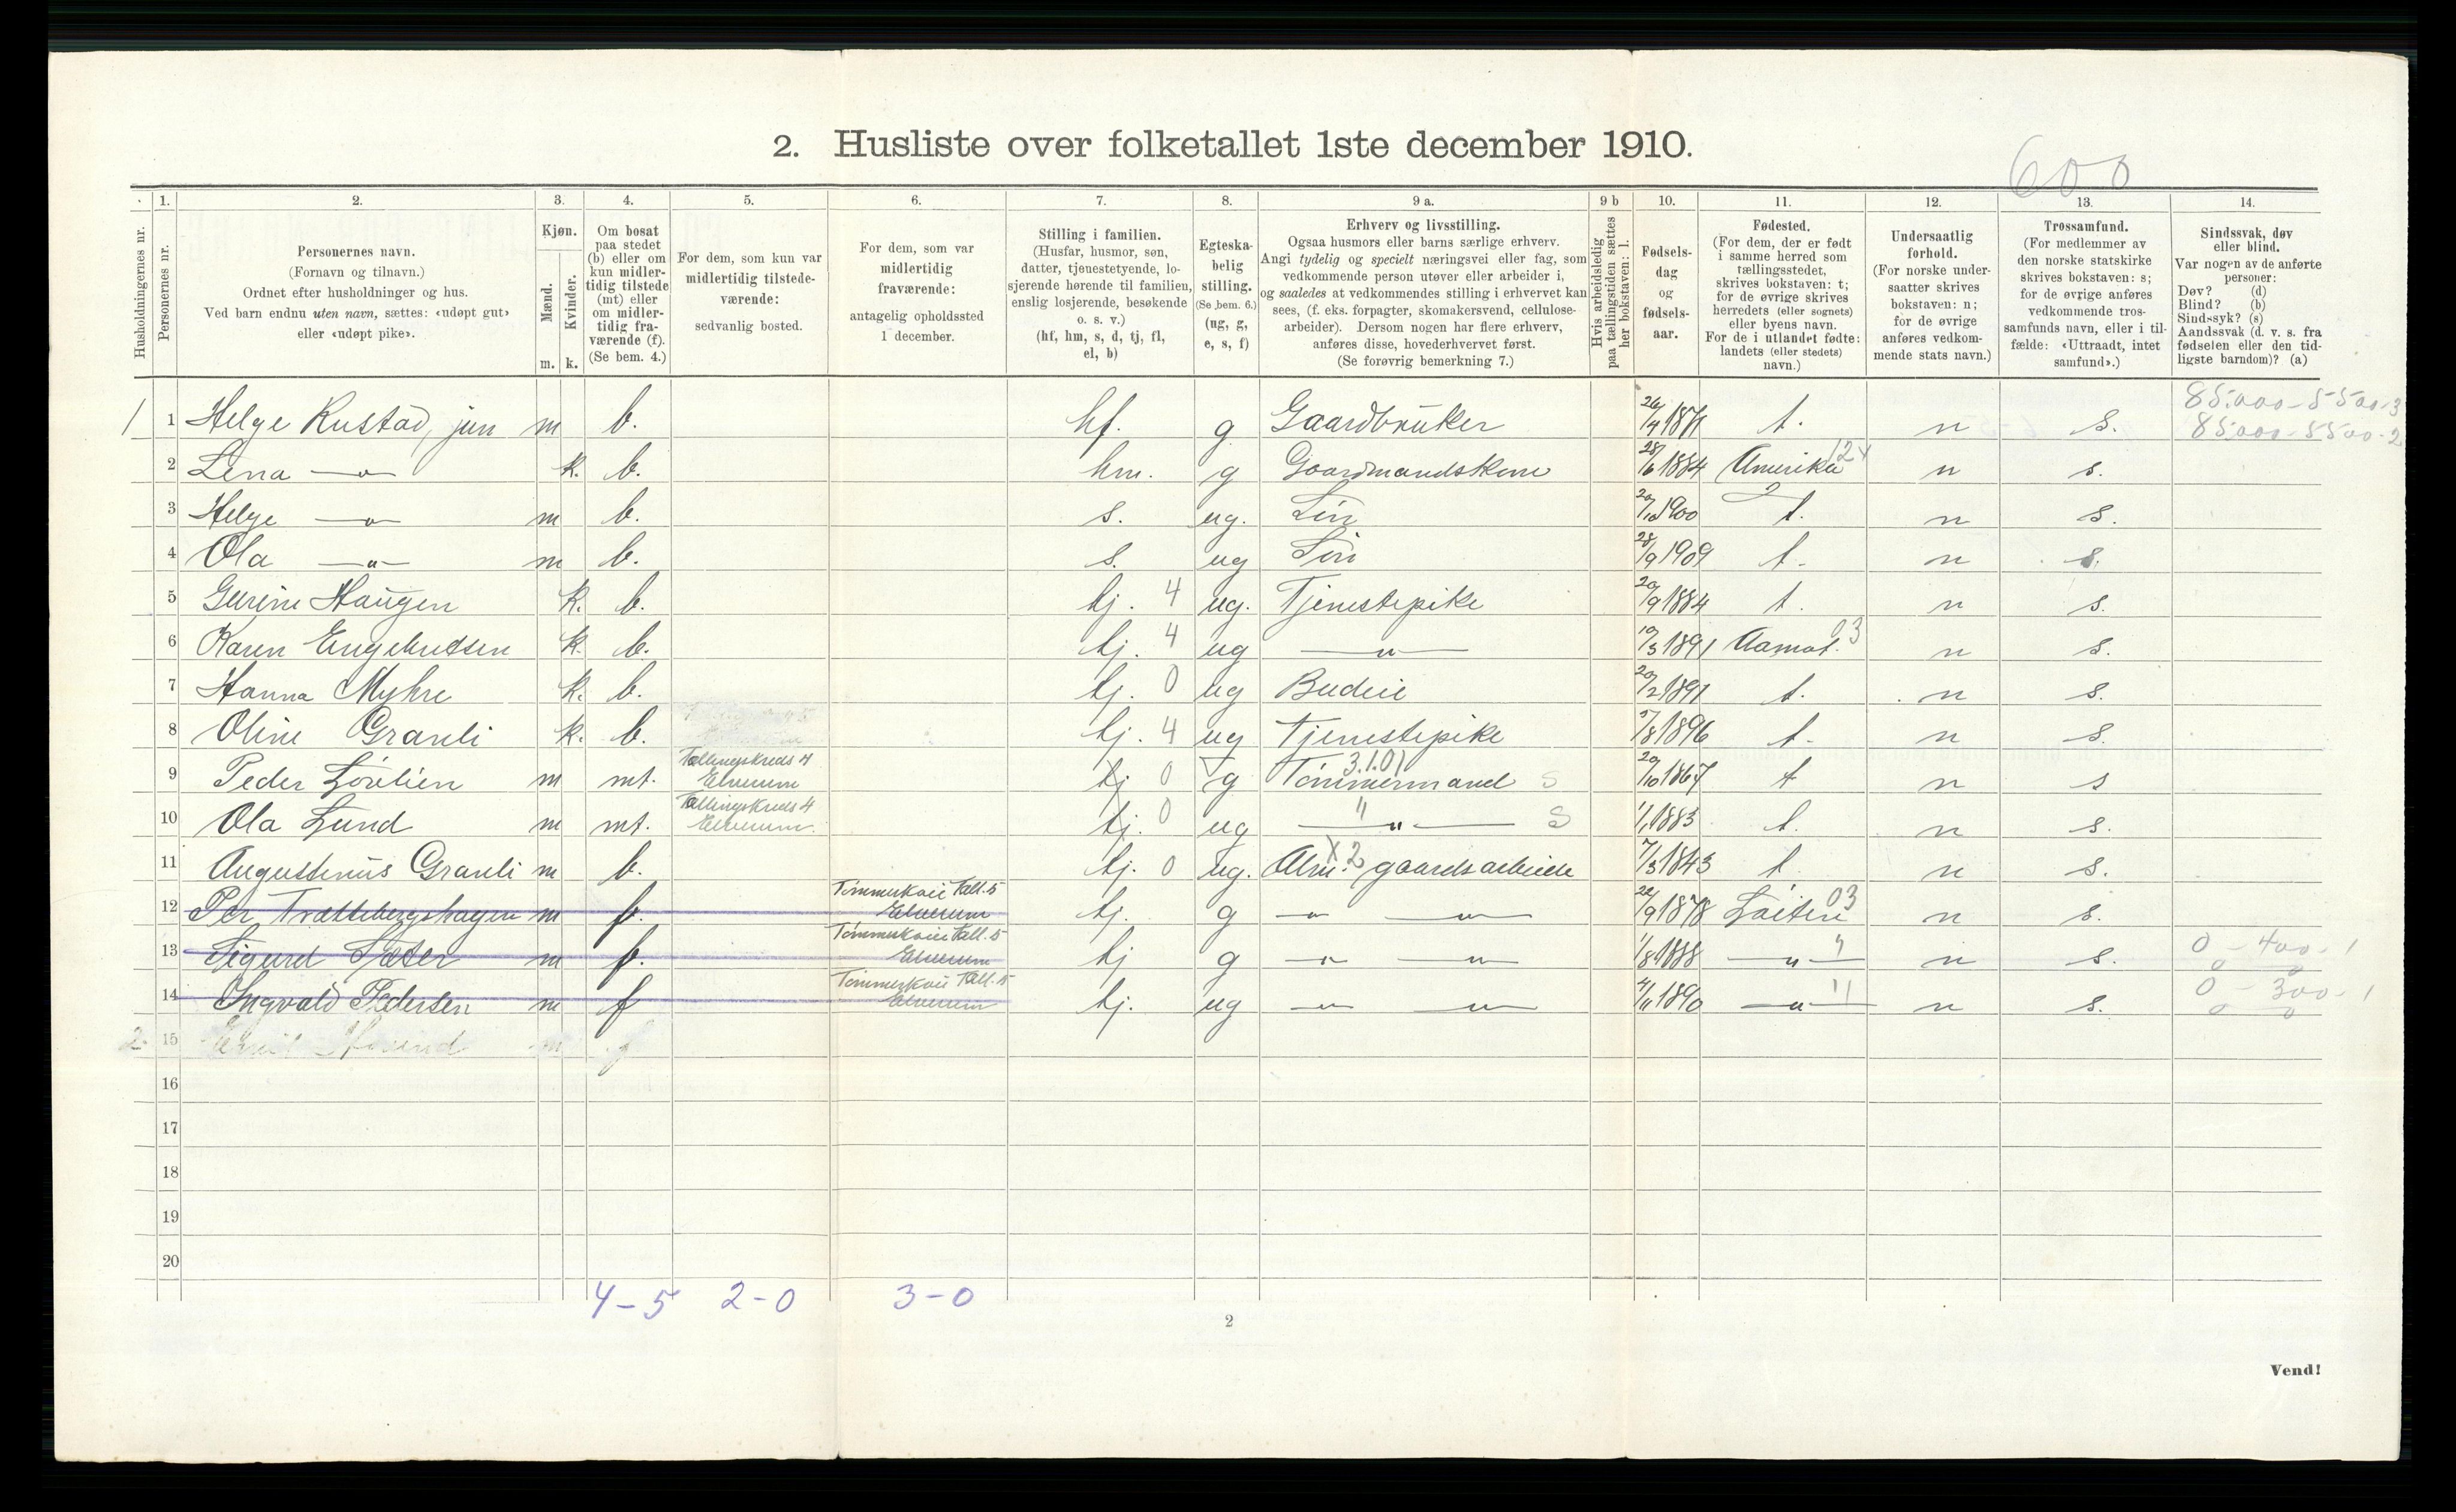 2. Husliste over folketallet 1ste december 1910.
600
Husholdningernes nr.
1.
Personernes nr.
2.
Personernes navn.
(Fornavn og tilnavn.)
Ordnet efter husholdninger og hus.
Ved barn endnu uten navn, sættes: «udøpt gut»
eller «udøpt pike».
3.
Kjøn.
Mænd.
Kvinder.
m. k.
4.
Om bosat
paa stedet
(b) eller om
kun midler-
tidig tilstede
(mt) eller
om midler-
tidig fra-
værende (f).
(Se bem. 4.)
5.
For dem, som kun var
midlertidig tilstede-
værende:
sedvanlig bosted.
6.
For dem, som var
midlertidig
fraværende:
antagelig opholdssted
1 december.
7.
Stilling i familien.
(Husfar, husmor, søn,
datter, tjenestetyende, lo-
sjerende hørende til familien,
enslig losjerende, besøkende
o. s. v.)
(hf, hm, s, d, tj, fl,
el, b)
8.
Egteska-
belig
stilling.
(Se bem. 6.)
(ug, g,
e, s, f)
9 a.
Erhverv og livsstilling.
Ogsaa husmors eller barns særlige erhverv.
Angi tydelig og specielt næringsvei eller fag, som
vedkommende person utøver eller arbeider i,
og saaledes at vedkommendes stilling i erhvervet kan
sees, (f. eks. forpagter, skomakersvend, cellulose-
arbeider). Dersom nogen har flere erhverv,
anføres disse, hovederhvervet først.
(Se forøvrig bemerkning 7.)
9 b
Hvis arbeidsledig
paa tællingstiden sættes
her bokstaven: l.
10.
Fødsels-
dag
og
fødsels-
aar.
11.
Fødested.
(For dem, der er født
i samme herred som
tællingsstedet,
skrives bokstaven: t;
for de øvrige skrives
herredets (eller sognets)
eller byens navn.
For de i utlandet fødte:
landets (eller stedets)
navn.)
12.
Undersaatlig
forhold.
(For norske under-
saatter skrives
bokstaven: n;
for de øvrige
anføres vedkom-
mende stats navn.)
13.
Trossamfund.
(For medlemmer av
den norske statskirke
skrives bokstaven: s;
for de øvrige anføres
vedkommende tros-
samfunds navn, eller i til-
fælde: «Uttraadt, intet
samfund».)
14.
Sindssvak, døv
eller blind.
Var nogen av de anførte
personer:
Døv? (d)
Blind? (b)
Sindssyk? (s)
Aandssvak (d. v. s. fra
fødselen eller den tid-
ligste barndom)? (a)
1 1 Helge Rustad, jun m b. hf. g Gaardbruker 26/4 1871 t. n s. 85.000-5500-3
85.000-5500-2
2 Lena —"— k. b. hm. g Gaardmandskone 28/6 1884 Amerika 12x n s.
3 Helge —"— m b. s. ug. Søn 20/10 1900 t. n s.
4 Ola —"— m b. s. ug Søn 28/9 1909 t. n s.
5 Gurine Haugen k. b. tj. 4 ug. Tjenestepike 20/9 1884 t. n s.
6 Karen Engebretsen k. b. tj. 4 ug —"— 10/3 1891 Aamot. 03 n s.
7 Hanna Myhre k. b. tj. 0 ug Budeie 20/2 1891 t. n s.
8 Oline Granli k. b. tj. 4 ug Tjenestepike 5/8 1896 t. n s.
9 Peder Lövlien m mt. Tællingskreds 4 Elverum tj 0 g Tømmermand 3.1.01 S 20/10 1867 t n s
10 Ola Lund m mt. Tællingskreds 4 Elverum. tj. 0 ug —"— S 1/1 1883 t. n s.
11 Augustinus Granli m b. tj. 0 ug. Alm. gaardsarbeide x2 7/3 1843 t n s.
12 Per Trættebergshagen m f. Tömmerkoie Tæll. 5 Elverum tj. g —"— —"— 22/9 1878 Löiten 03 n s.
13 Sigurd Sæter m f. Tömmerkoie Tæll. 5 Elverum tj g —"— —"— 1/8 1888 —"— " n s. 0-400-1
0 0
14 Ingvald Pedersen m f Tömmerkoie Tæll. 5 Elverum tj. ug —"— —"— 4/11 1890 —"— " n s. 0-300-1
0 0
2. 15 m f
16
17
18
19
20
4-5 2-0 3-0
2
Vend!